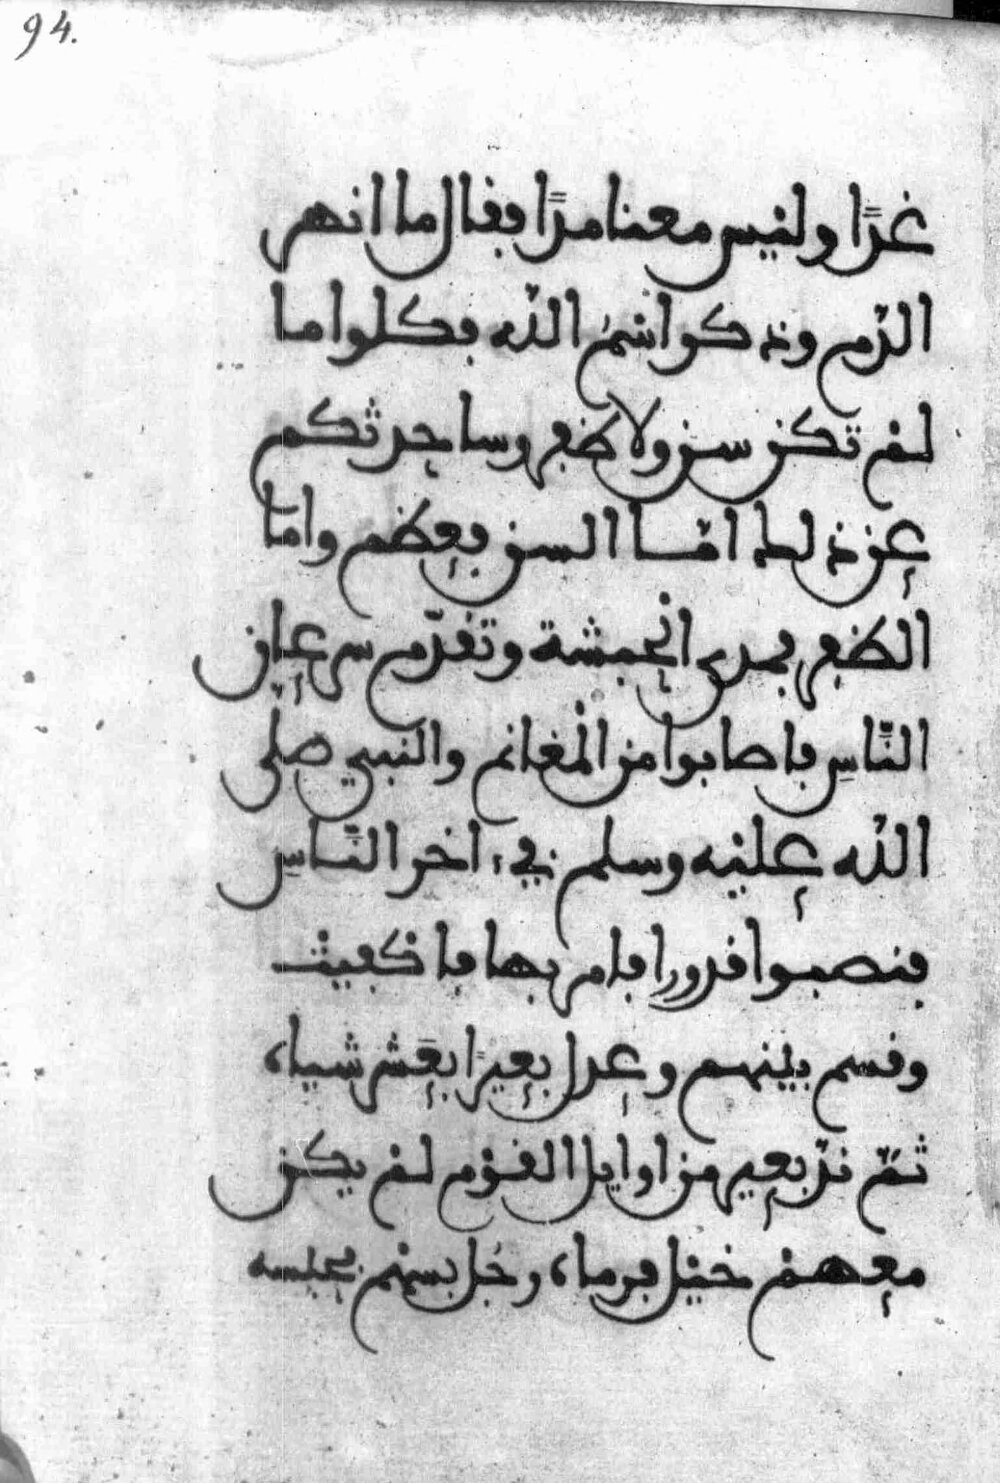 94.
غدًا وليس معنا مدًا فقال ما انهر
الدّم وذكر اسمُ اللّه فكلوا ما
لم تكن سن ولا ظفر وساحدثكم
عن ذلك امّا السن فعظم وامّا
الظفر فمدى الحبشة وتقدّم سرعان
النّاسِ فاصابوا من المغانم والنبي صلى
اللّه عليه وسلم في اخر النّاسِ
فنصبوا قدورا فامر بها فاكفيت
وقسم بينهم وعدل بعيرًا بعَشر شياه
ثمّ ندّ بعير من اوايل القوم لم يكن
معهم خيل فرماه رجُل بسهم فحبسه